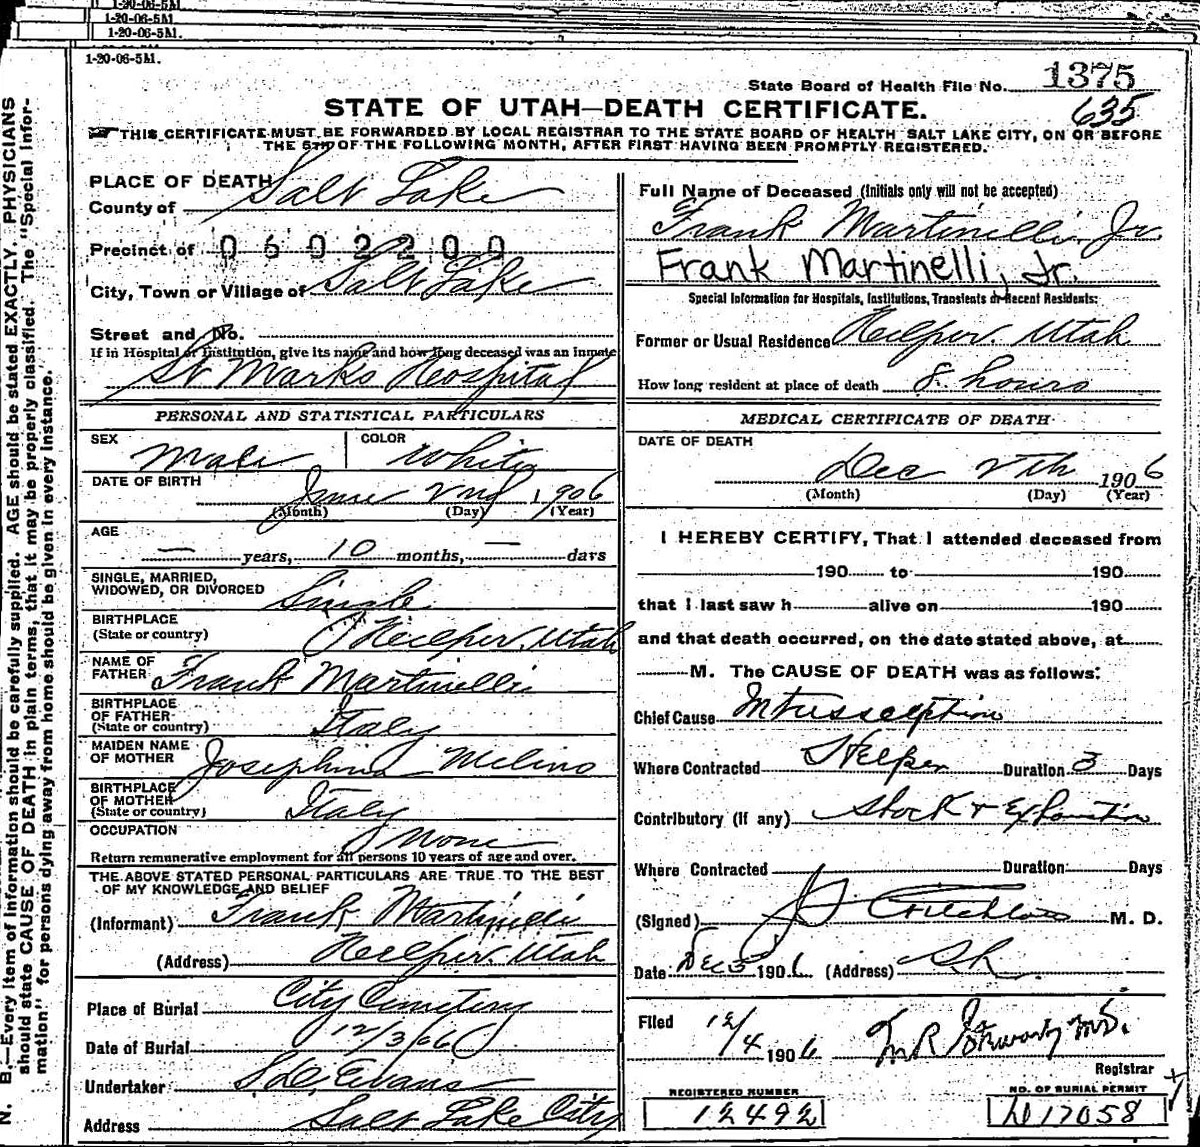 1-20-06-5M.
1-20-06-5M.
1-20-06-5M.
1-20-06-5M.
State Board of Health File No. 1375
635
STATE OF UTAH—DEATH CERTIFICATE.
THIS CERTIFICATE MUST BE FORWARDED BY LOCAL REGISTRAR TO THE STATE BOARD OF HEALTH SALT LAKE CITY, ON OR BEFORE
THE 5TH OF THE FOLLOWING MONTH, AFTER FIRST HAVING BEEN PROMPTLY REGISTERED.
N. B.—Every item of information should be carefully supplied. AGE should be stated EXACTLY. PHYSICIANS
should state CAUSE OF DEATH in plain terms, that it may be properly classified. The "Special Infor-
mation" for persons dying away from home should be given in every instance.
PLACE OF DEATH
County of Salt Lake
Precinct of 0602200
City, Town or Village of Salt Lake
Street and No.
If in Hospital or Institution, give its name and how long deceased was an inmate
St Marks Hospital
PERSONAL AND STATISTICAL PARTICULARS
SEX Male COLOR White
DATE OF BIRTH
June 2nd 1906
(Month) (Day) (Year)
AGE
— years, 10 months, — days
SINGLE, MARRIED,
WIDOWED, OR DIVORCED Single
BIRTHPLACE
(State or country) Helper, Utah
NAME OF
FATHER Frank Martinelli
BIRTHPLACE
OF FATHER
(State or country) Italy
MAIDEN NAME
OF MOTHER Josephine Melino
BIRTHPLACE
OF MOTHER
(State or country) Italy
OCCUPATION None
Return remunerative employment for all persons 10 years of age and over.
THE ABOVE STATED PERSONAL PARTICULARS ARE TRUE TO THE BEST
OF MY KNOWLEDGE AND BELIEF
(Informant) Frank Martinelli
(Address) Helper, Utah
Place of Burial City Cemetery
Date of Burial 12/3/06
Undertaker S D Evans
Address Salt Lake City
Full Name of Deceased (Initials only will not be accepted)
Frank Martinelli Jr.
Frank Martinelli, Jr.
Special Information for Hospitals, Institutions, Transients or Recent Residents:
Former or Usual Residence Helper. Utah
How long resident at place of death 8 hours
MEDICAL CERTIFICATE OF DEATH
DATE OF DEATH
Dec 1906
(Month) (Day) (Year)
I HEREBY CERTIFY, That I attended deceased from
190 to 190
that I last saw h alive on 190
and that death occurred, on the date stated above, at
M. The CAUSE OF DEATH was as follows:
Chief Cause Intussception
Where Contracted Helper Duration 3 Days
Contributory (If any) Shock & Exhaustion
Where Contracted Duration Days
(Signed) M. D.
Date Dec 3 1906 (Address) S.L.
Filed 12/4 1906 M.D.
Registrar
REGISTERED NUMBER
12492
NO. OF BURIAL PERMIT
17058